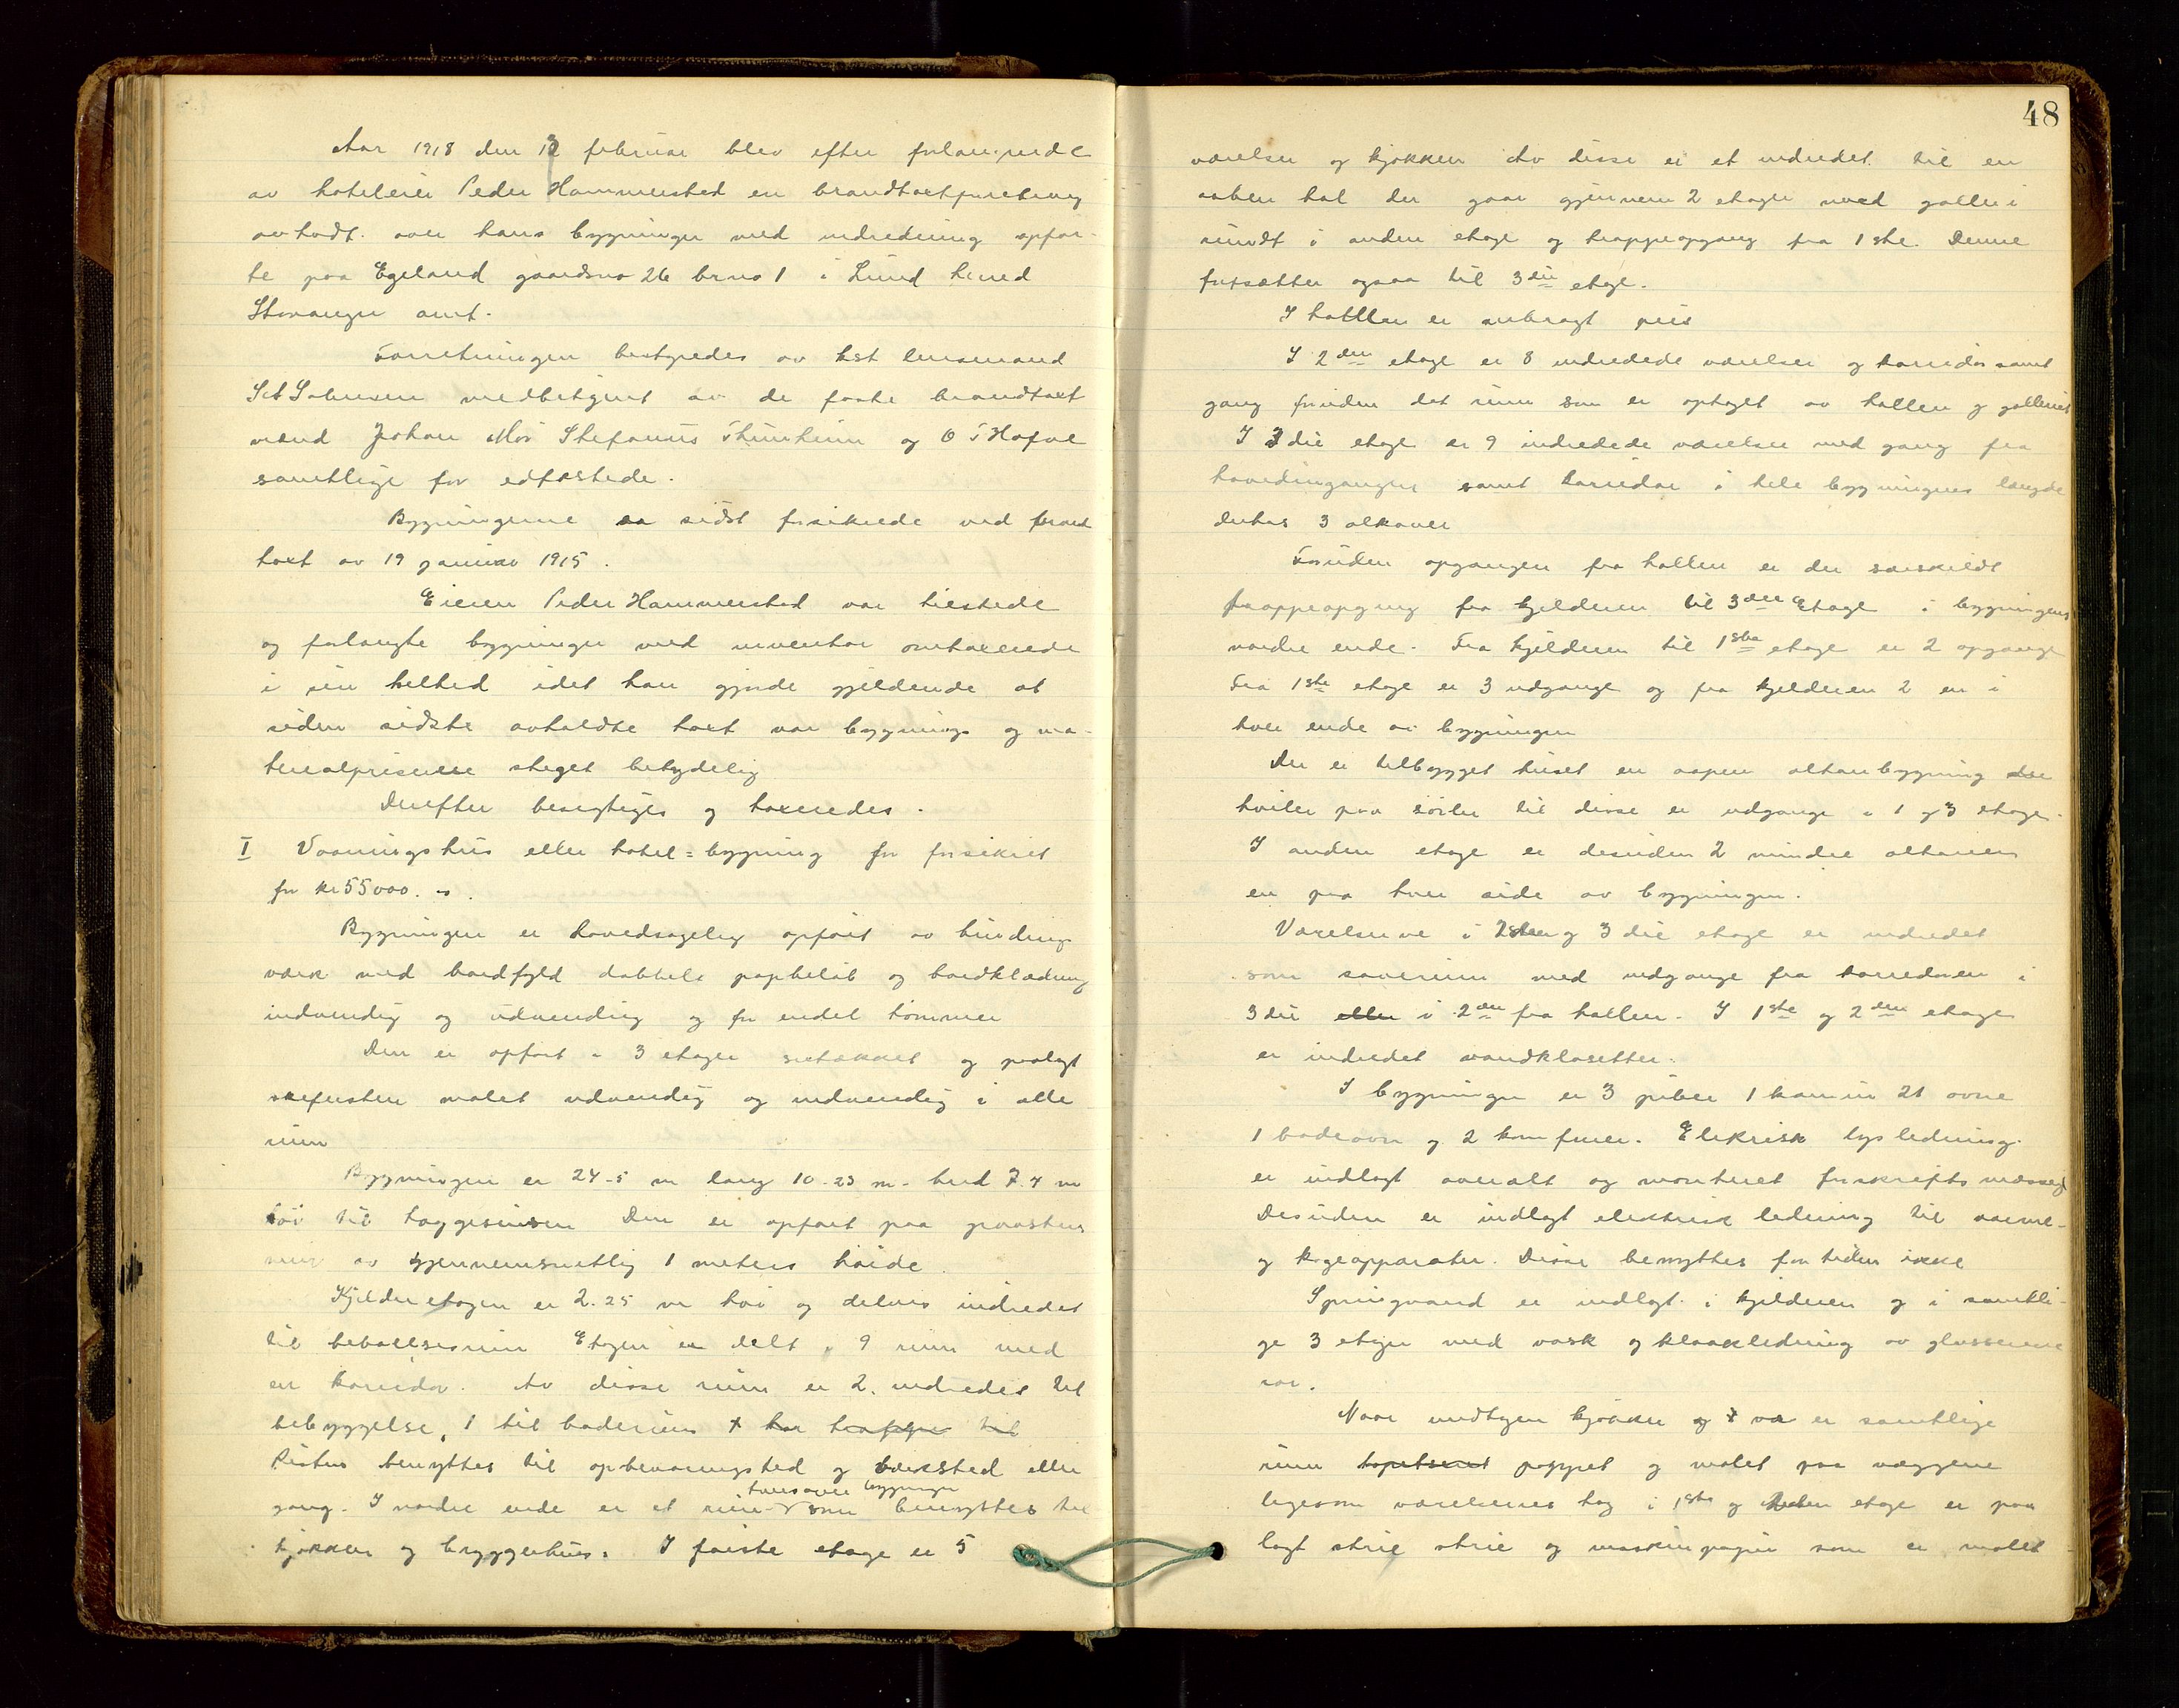 Aar 1918 den 13 februar blev efter forlangende
av hoteleier Peder Hammerstad en brandtaxtforretning
avholdt over hans bygninger med indredning opfør-
te paa Egeland gaardsno 26 brno 1 i Lund herred
Stavanger amt.
Forretningen bestyredes av kst lensmand
Salvesen medbetjent av de faste brandtaxt
mænd Johan Moi Stefanus Thunheim og O T Hofve
samtlige før edfæstede.
Bygningerne er sidst forsikrede ved brand
taxt av 19 januar 1915.
Eieren Peder Hammerstad var tilstede
og forlangte bygninger med inventar omtaxerede
i sin helhed idet han gjorde gjeldende at
siden sidste avholdte taxt var bygnings og ma-
terialpriserne steget betydelig
Derefter besigtiges og taxeredes.
I Vaaningshus eller hotel=bygning før forsikret
for kr 55000.
Bygningen er hovedsagelig opført av bindings
værk med bordfyld dobbelt papbelæg og bordklædning
indvendig og udvendig og for endel tømmer
Den er opført i 3 etager og paalagt
skifersten malet udvendig og indvendig i alle
rum
Bygningen er 24.5 m lang 10.23 m. bred 7.4 m
høi til taggesimsen Den er opført paa graastens
mur av gjennemsnitlig 1 meters høide.
Kjelderetagen er 2.25 m høi og delvis indredet
til beboelsesrum Etagen er delt i 9 rum med
en korridor. Av disse rum er 2 indredet til
bebyggelse, 1 til baderum + har trappe til
Resten benyttes til opbevaringsted og værksted eller
tversover bygningen
gang. I nordre ende er et rum som benyttes til
kjøkken og bryggerhus. I første etage er 5
48
værelser og kjøkken Av disse er et indredet til en
aaben hal der gaar gjennem 2 etager med galleri
rundt i anden etage og trappeopgang fra 1ste. Denne
fortsætter ogsaa til 3die etage.
I hallen er anbragt peis
I 2den etage er 8 indredede værelser og korridor samt
gang foruden det rum som er optaget av hallen og galleriet
I 3die etage er 9 indredede værelser med gang fra
hovedingangen samt korridor i hele bygningens længde
dertas 3 alkover
Foruden opgangen fra hallen er der særskildt
trappeopgang fra kjelderen til 3die Etage i bygningens
nordre ende. Fra kjelderen til 1ste etage er 2 opgange
Fra 1ste etage er 3 udgange og fra kjelderen 2 en i
hver ende av bygningen
Der er tilbygget huset en aapen altanbygning der
hviler paa søiler til disse er udgange i 1 og 3 etage.
I anden etage er desuden 2 mindre altaner
en paa hver side av bygningen.
Værelserne i 2den og 3die etage er indredet
som soverum med udgange fra korridoren i
3die eller i 2den fra hallen. I 1ste og 2den etage
er indredet vandklosetter.
I bygningen er 3 piber 1 kamin 21 ovne
1 badeovn og 2 komfurer. Elekrisk lysledning
er indlagt overalt og monteret forskriftsmæssig
Desuden er indlagt elektrisk ledning til varme-
og kogeapparater. Disse benyttes for tiden ikke
Springvand er indlagt i kjelderen og i samtli-
ge 3 etager med vask og kloakledning av glasserede
rør.
Naar undtagen kjøkken og er samtlige
rum tapetseret pappet og malet paa væggene
ligesom værelsernes tag i 1ste og 2den etage er paa
lagt strie strie og maskinpapir som er malet